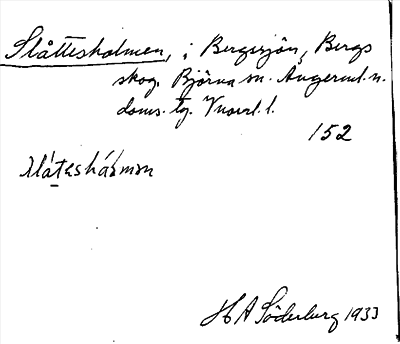 Slåttesholmen, i Bergsjön, Bergs
skog. Björna sn. Ångerml. n.
doms. tg. Vnorrl. l.
152
H A Söderberg 1933